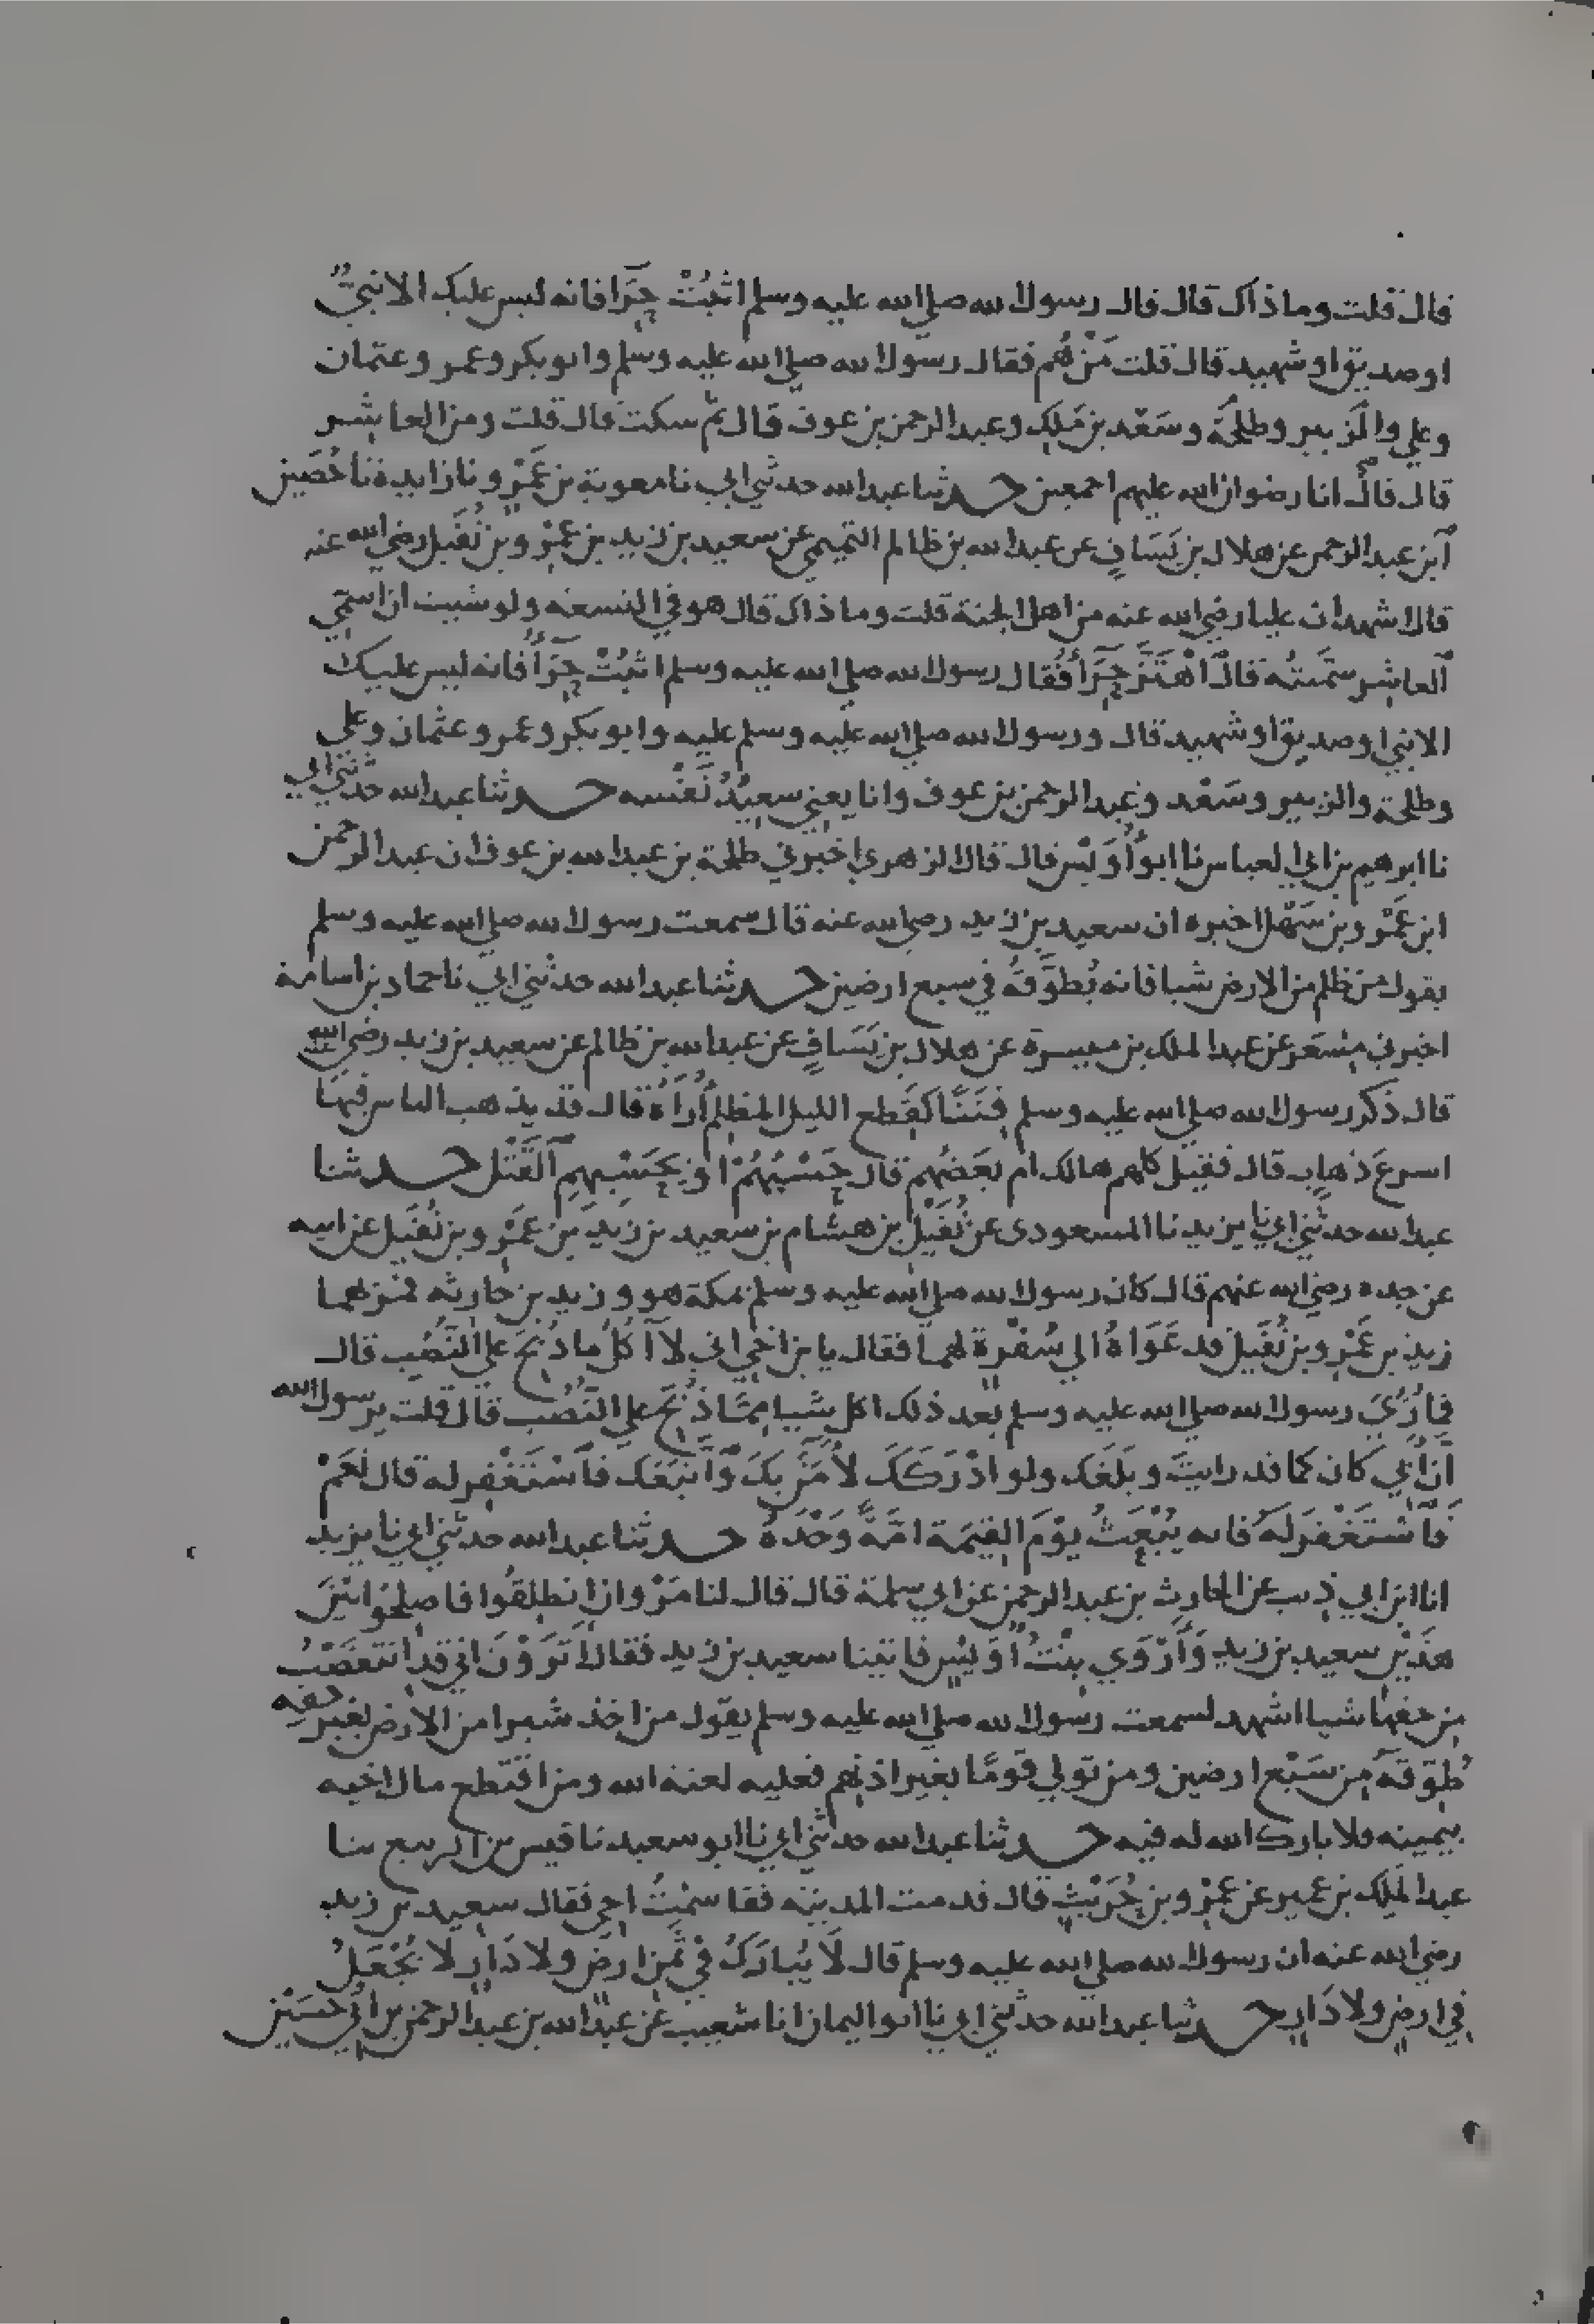 قال قلت وما ذاك قال قال رسول الله صلى الله عليه وسلم اثبُتْ حِرَا فانه ليس عليك الا نبيٌّ
او صديق او شهيد قال قلت مَنْ هُم فقال رسول الله صلى الله عليه وسلم وابو بكر وعمر وعثمان
وعلي والزبير وطلحة وسَعْد بن مَلِك وعبد الرحمن بن عوف قال ثم سكت قال قلت ومن العاشر
قال قال انا رضوان الله عليهم اجمعين حدثنا عبد الله حدثني ابي نا معوية بن عَمْرو نا زايدة نا حُصَين
ابن عبد الرحمن عن هلال بن يَسَافٍ عن عبد الله بن ظالم التميمي عن سعيد بن زيد بن عَمْرو بن نُفَيل رضي الله عنه
قال اشهد ان عليا رضي الله عنه من اهل الجنة قلت وما ذاك قال هو في التسعة ولو شيت ان اسمي
العاشر سمّيته قال اهْتَزَّ حِرَأُ فقال رسول الله صلى الله عليه وسلم اثبُتْ حِرَأُ فانه ليس عليك
الا نبي او صديق او شهيد قال ورسول الله صلى الله عليه وسلم عليه وابو بكر وعمر وعثمان وعلي
وطلحة والزبير وسَعْد وعبد الرحمن بن عوف وانا يعني سعيدٌ نَفْسه حدثنا عبد الله حدثني ابي
نا ابرهيم بن ابي العباس نا ابو أُوَيْس قال قال الزهري اخبرني طلحة بن عبد الله بن عوف ان عبد الرحمن
ابن عَمْرو بن سَهْل اخبره ان سعيد بن زيد رضي الله عنه قال سمعت رسول الله صلى الله عليه وسلم
يقول من ظلم من الارض شيا فانه يُطوَّقهُ في سبع ارضين حدثنا عبد الله حدثني ابي نا حماد بن اسامة
اخبرني مِسْعَر عن عبد الملك بن ميسرة عن هلال بن يَسَافٍ عن عبد الله بن ظالم عن سعيد بن زيد رضي الله عنه
قال ذكر رسول الله صلى الله عليه وسلم فِتَنًا كقِطع الليل المظلم أُرَاهُ قال قد يذهب الناس فيها
اسرعَ ذهابٍ قال فقيل كلهم هالك ام بعضُهم قال حَسْبُهُمْ او بِحَسْبِهِم القَتْل حدثنا
عبد الله حدثني ابي نا يزيد نا المسعودي عن نُفَيْل بن هشام بن سعيد بن زيد بن عَمْرو بن نُفَيل عن ابيه
عن جده رضي الله عنهم قال كان رسول الله صلى الله عليه وسلم بمكة هو وزيد بن حارثه فمر بهما
زيد بن عَمْرو بن نُفَيل فدعَوَاهُ الى سُفْرة لهما فقال يا بن اخي اني لا آكُل ما ذُبِحَ على النُصُب قال
فما رُيَ رسول الله صلى الله عليه وسلم بعد ذلك اكل شيا مِمّا ذُبِحَ على النُصُب قال قلت يرسول الله
انّ ابي كان كما قد رايتَ وبَلَغَك ولو ادْرَكَكَ لأمَنَ بِكَ وَاتَّبَعَك فاسْتَغْفِر له قال نَعَمْ
فأسْتَغْفِرُ لَهُ فانه يُبْعَثُ يَوْمَ القِيمَة امّةً وَحْدَهُ حدثنا عبد الله حدثني ابي نا يزيد
انا ابن ابي ذيب عن الحارث بن عبد الرحمن عن ابي سلمة قال قال لنا مَرْوان انطلِقُوا فاصلِحُوا بَيْنَ
هذَيْن سعيد بن زيد وَأَرْوَى بِنْتُ أُوَيْس فاتينا سعيد بن زيد فقال اتَرَوْنَ اني قد انتقَصْتُ
من حقها شيا اشهد لسمعت رسول الله صلى الله عليه وسلم يقول من اخذ شبرا من الارض بغير حقه
طُوّقهُ من سَبْع ارضين ومن تولى قومًا بغير اذنهم فعليه لعنة الله ومن اقتطع مال اخيه
بيمينه فلا بارك الله له فيه حدثنا عبد الله حدثني ابي نا ابو سعيد نا قيس بن الربيع نا
عبد الملك بن عمير عن عَمْرو بن حُرَيْثٍ قال قدمت المدينه فقاسمْتُ اخي فقال سعيد بن زيد
رضي الله عنه ان رسول الله صلى الله عليه وسلم قال لَا يُبارَكُ في ثَمَن ارضٍ ولا دَارٍ لا يُجْعَلُ
في ارضٍ ولا دَارٍ حدثنا عبد الله حدثني ابي نا ابو اليمان انا شعيب عن عبد الله بن عبد الرحمن بن ابي حسَيْن